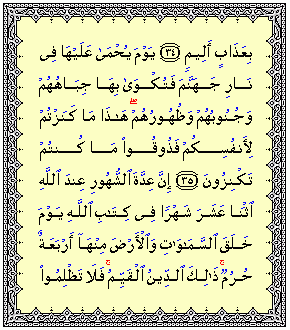 بِعَذَابٍ أَلِيمٍ ٣٤ يَوْمَ يُحْمَىٰ عَلَيْهَا فِى
نَارِ جَهَنَّمَ فَتُكْوَىٰ بِهَا جِبَاهُهُمْ
وَجُنُوبُهُمْ وَظُهُورُهُمْ ۖ هَـٰذَا مَا كَنَزْتُمْ
لِأَنفُسِكُمْ فَذُوقُوا۟ مَا كُنتُمْ
تَكْنِزُونَ ٣٥ إِنَّ عِدَّةَ ٱلشُّهُورِ عِندَ ٱللَّهِ
ٱثْنَا عَشَرَ شَهْرًا فِى كِتَـٰبِ ٱللَّهِ يَوْمَ
خَلَقَ ٱلسَّمَـٰوَٰتِ وَٱلْأَرْضَ مِنْهَآ أَرْبَعَةٌ
حُرُمٌ ۚ ذَٰلِكَ ٱلدِّينُ ٱلْقَيِّمُ ۚ فَلَا تَظْلِمُوا۟